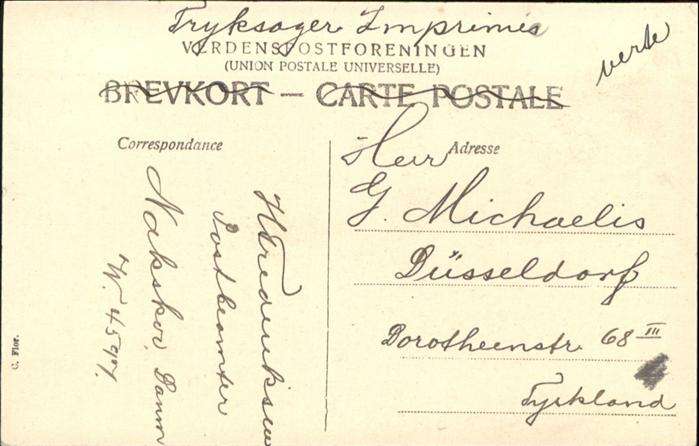 Tryksager Imprimés
verte
VERDENSPOSTFORENINGEN
(UNION POSTALE UNIVERSELLE)
BREVKORT — CARTE POSTALE
Correspondance
Adresse
Herr
G. Michaelis
Düsseldorf
Dorotheenstr. 68 III
Tyskland
Frederiksen
Postbeamter
Nakskov, Danm
C. Flor.